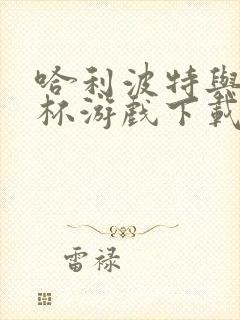 哈利波特與
杯游戲下載
雷禄